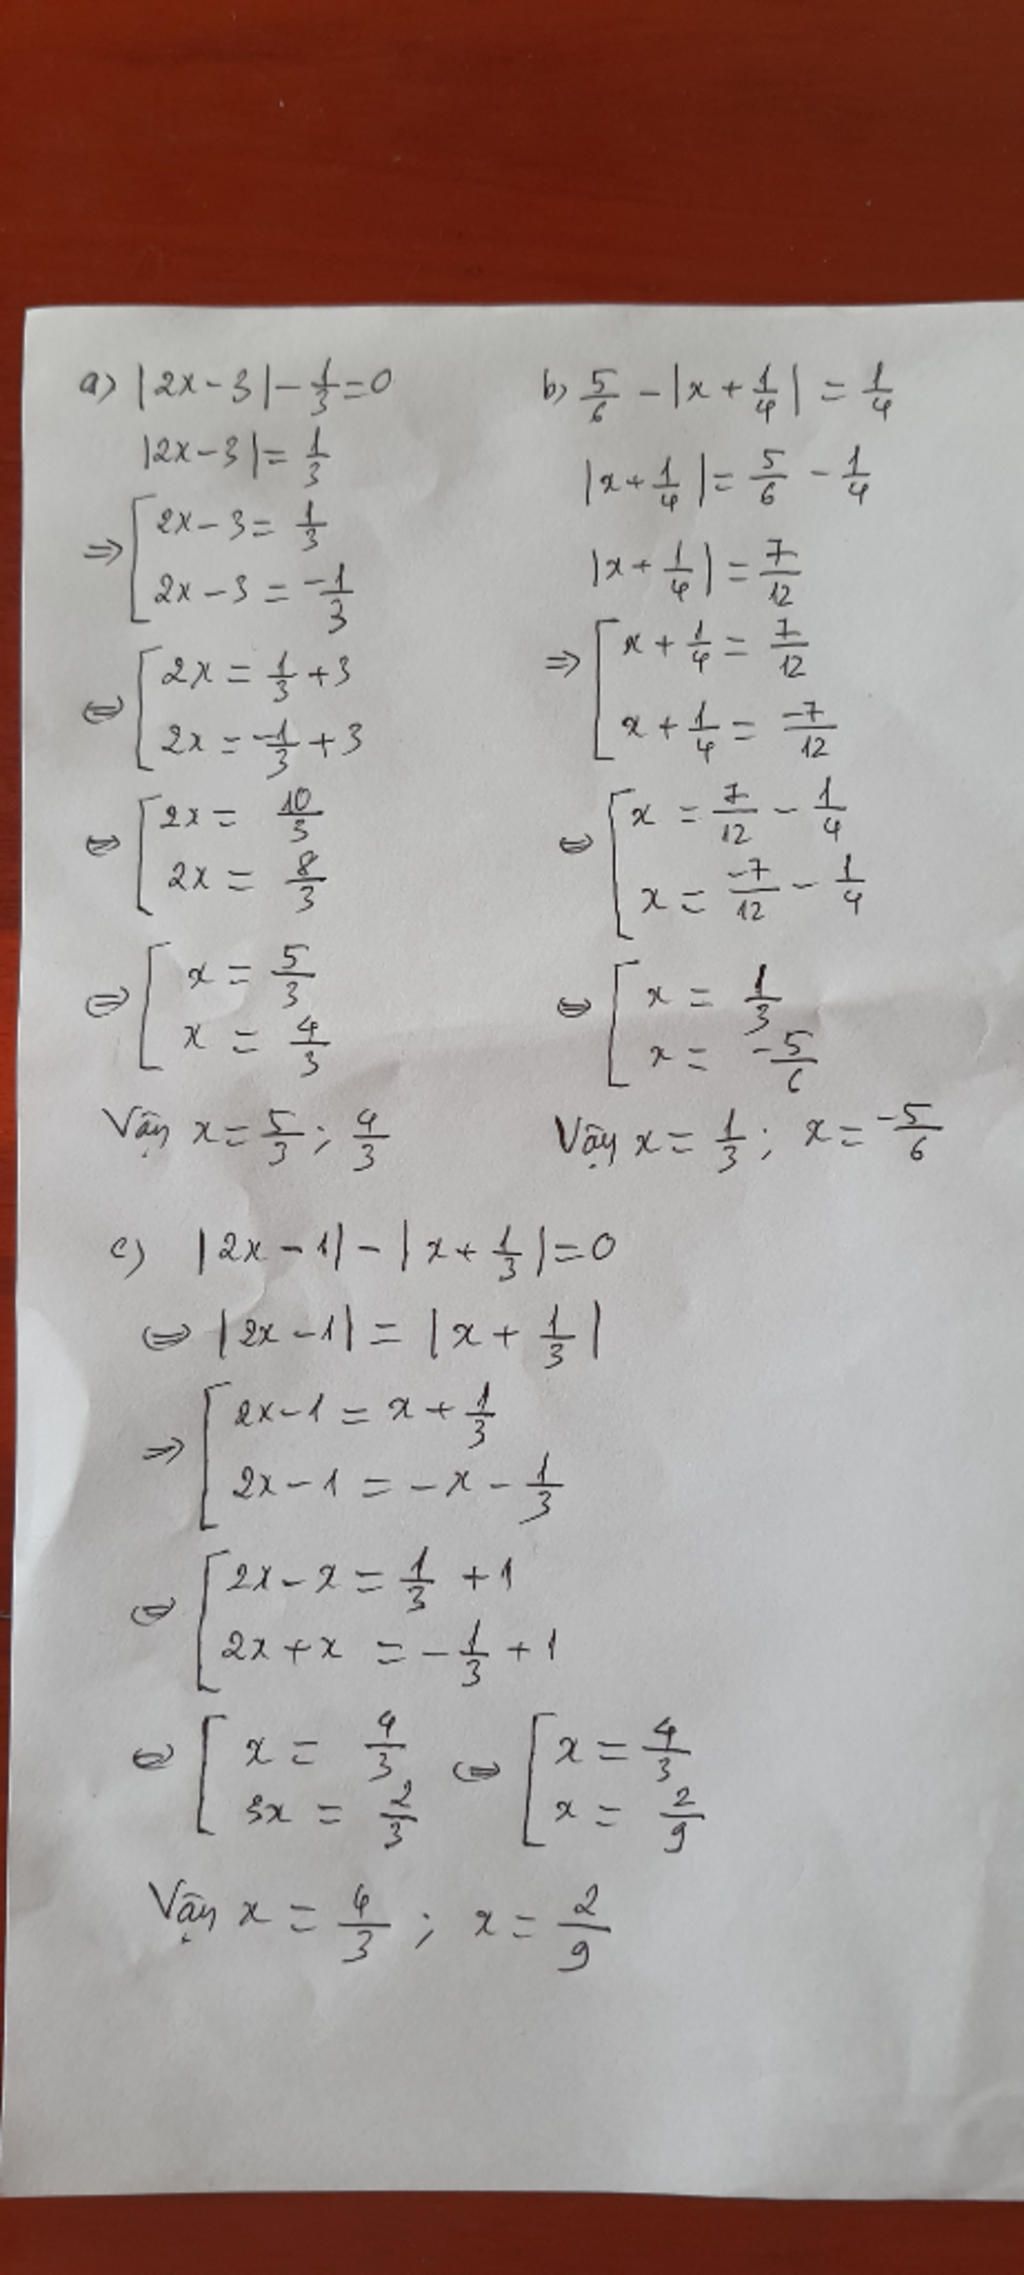 a) |2x - 3| - 1/3 = 0
|2x - 3| = 1/3
⇒ [ 2x - 3 = 1/3
2x - 3 = -1/3
⇔ [ 2x = 1/3 + 3
2x = -1/3 + 3
⇔ [ 2x = 10/3
2x = 8/3
⇔ [ x = 5/3
x = 4/3
Vậy x = 5/3 ; 4/3
b) 5/6 - |x + 1/4| = 1/4
|x + 1/4| = 5/6 - 1/4
|x + 1/4| = 7/12
⇒ [ x + 1/4 = 7/12
x + 1/4 = -7/12
⇔ [ x = 7/12 - 1/4
x = -7/12 - 1/4
⇔ [ x = 1/3
x = -5/6
Vậy x = 1/3 ; x = -5/6
c) |2x - 1| - |x + 1/3| = 0
⇔ |2x - 1| = |x + 1/3|
⇒ [ 2x - 1 = x + 1/3
2x - 1 = -x - 1/3
⇔ [ 2x - x = 1/3 + 1
2x + x = -1/3 + 1
⇔ [ x = 4/3 ⇔ [ x = 4/3
3x = 2/3 x = 2/9
Vậy x = 4/3 ; x = 2/9